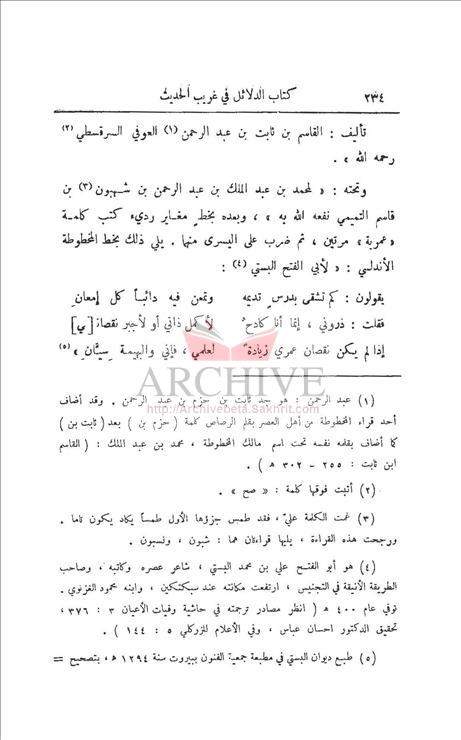 ٢٣٤ كتاب الدلائل في غريب الحديث
تأليف : القاسم بن ثابت بن عبد الرحمن (١) العوفي السرقسطي (٢)
رحمه الله » .
وتحته : « لمحمد بن عبد الملك بن عبد الرحمن بن شهبون (٣) بن
قاسم التميمي نفعه الله به » ، وبعده بخط مغاير رديء كتب كلمة
« عموية » مرتين ، ثم ضرب على اليسرى منها . يلي ذلك بخط المخطوطة
الأندلسي : « لأبي الفتح البستي (٤) :
يقولون : كم تشقى بدرس تديمه وتمعن فيه دائباً كل إمعان
فقلت : ذروني ، إنما أنا كادح لأكمل ذاتي أو لأجبر نقصانـ [ـي]
إذا لم يكن نقصان عمري زيادة لعلمي ، فإني والبهيمة سيّان » (٥)
ARCHIVE
http://Archivebeta.Sakhrit.com
(١) عبد الرحمن : هو جد ثابت بن حزم بن عبد الرحمن . وقد أضاف
أحد قراء المخطوطة من أهل العصر بقلم الرصاص كلمة ( حزم بن ) بعد ( ثابت بن )
كما أضاف بقلمه نفسه تحت اسم مالك المخطوطة ، محمد بن عبد الملك : ( القاسم
ابن ثابت : ٢٥٥ - ٣٠٢ ه ) .
(٢) أثبت فوقها كلمة : « صح » .
(٣) غمت الكلمة عليّ ، فقد طمس جزؤها الأول طمساً يكاد يكون تاما .
ورجحت هذه القراءة ، يليها قراءتان هما : شبون ، ونسبون .
(٤) هو أبو الفتح علي بن محمد البستي ، شاعر عصره وكاتبه ، وصاحب
الطريقة الأنيقة في التجنيس ، ارتفعت مكانته عند سبكتكين ، وابنه محمود الغزنوي .
توفي عام ٤٠٠ ه ( انظر مصادر ترجمته في حاشية وفيات الأعيان ٣ : ٣٧٦ ،
تحقيق الدكتور احسان عباس ، وفي الأعلام للزركلي ٥ : ١٤٤ ) .
(٥) طبع ديوان البستي في مطبعة جمعية الفنون ببيروت سنة ١٢٩٤ ه ، بتصحيح =